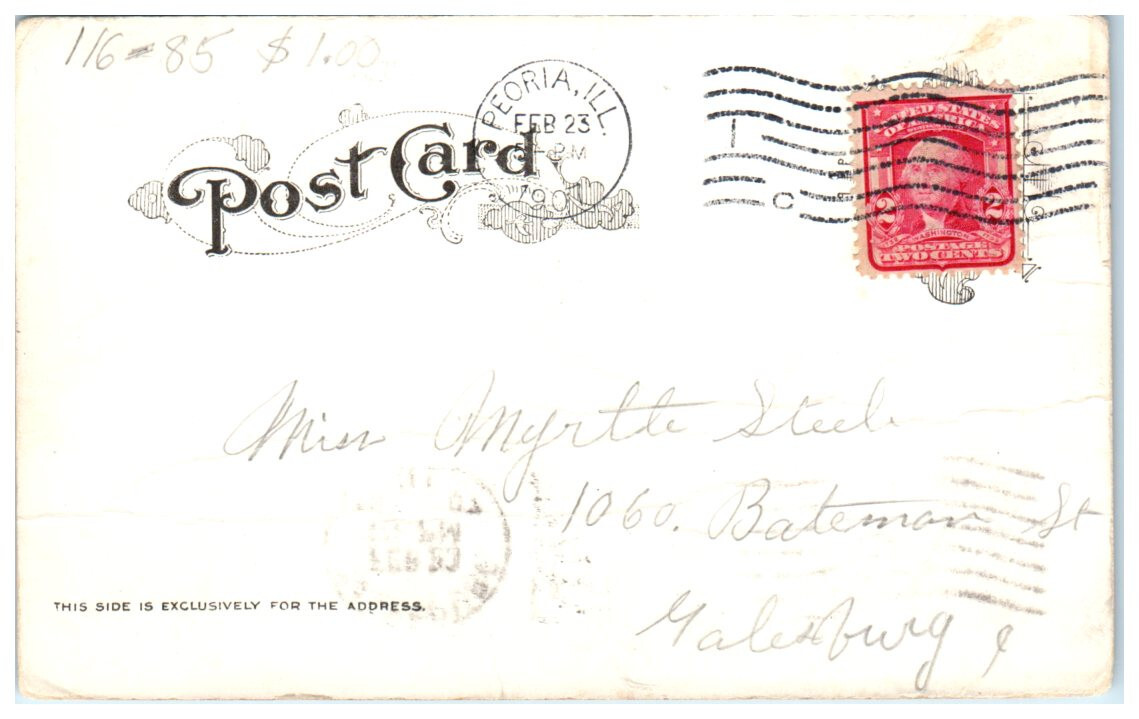 116-85 $1.00
PEORIA, ILL.
FEB 23
PM
190
Post Card
1
C
UNITED STATES
OF AMERICA
2 2
WASHINGTON
POSTAGE
TWO CENTS
Miss Myrtle Steele
1060. Bateman St
Galesburg
THIS SIDE IS EXCLUSIVELY FOR THE ADDRESS.